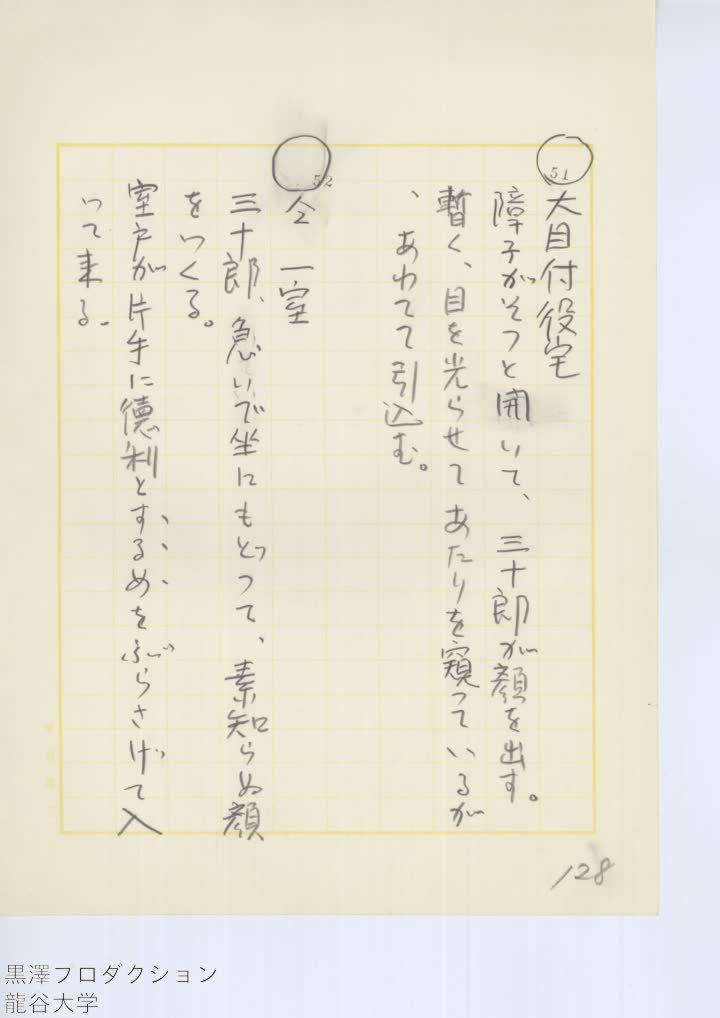 51
大目付役宅
障子がそつと開いて、三十郎が顔を出す。
暫く、目を光らせてあたりを窺つているが
、あわてて引込む。
52
仝 一室
三十郎、急いで坐にもどつて、素知らぬ顔
をつくる。
室戸が片手に德利とするめをぶらさげて入
つて来る。
128
黒澤プロダクション
龍谷大学